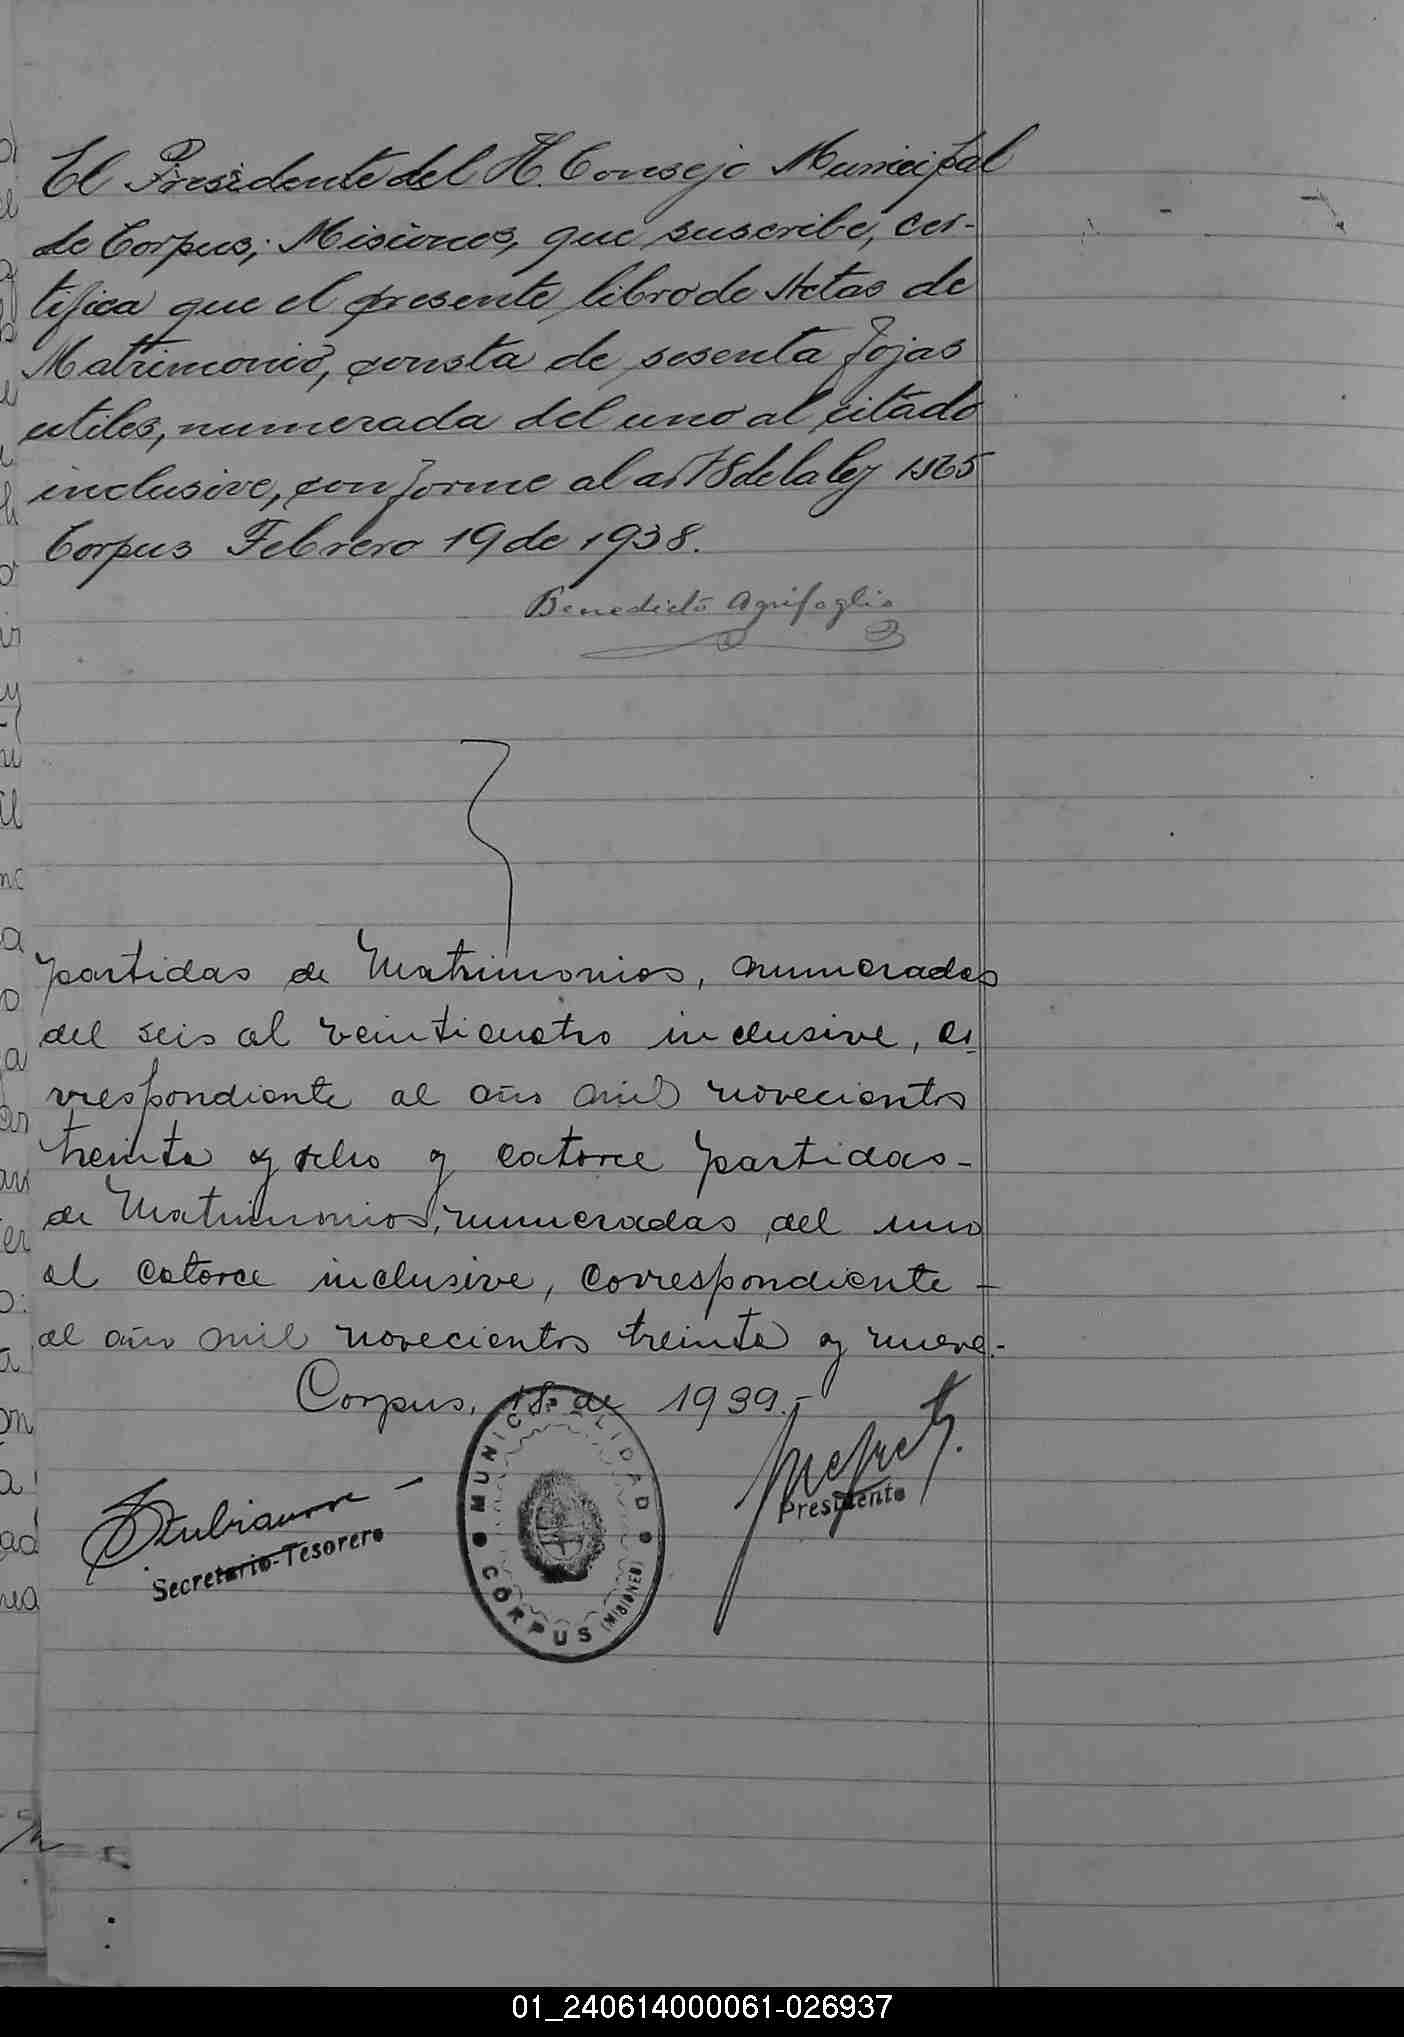 El Presidente del H. Consejo Municipal
de Corpus, Misiones, que suscribe, cer-
tifica que el presente libro de Actas de
Matrimonio, consta de sesenta fojas
utiles, numerada del uno al citado
inclusive, conforme al art 8 de la ley 1565
Corpus Febrero 19 de 1938.
Benedicto Agrifoglio
partidas de Matrimonios, numeradas
del seis al veinticuatro inclusive, co
rrespondiente al año mil novecientos
treinta y ocho y catorce partidas-
de Matrimonios, numeradas del uno
al catorce inclusive, correspondiente -
al año mil novecientos treinta y nueve.-
Corpus, 18 de 1939.-
MUNICIPALIDAD
CORPUS (MISIONES)
Presidente
Secretario-Tesorero
01_240614000061-026937